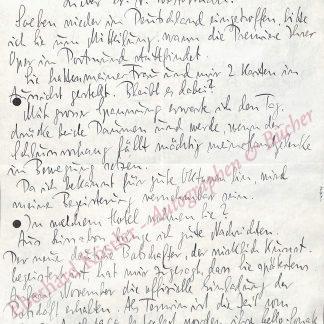 Soeben wieder in Deutschland eingetroffen, bitte
ich Sie um Mitteilung, wann die Premiere Ihrer
Oper in Dortmund stattfindet.
Sie hatten meiner Frau und mir 2 Karten in
Aussicht gestellt. Bleibt es dabei?
Mit grosser Spannung erwarte ich den Tag,
drücke beide Daumen und werde, wenn der
Schlussvorhang fällt mächtig meine
in Bewegung setzen.
Da ich bekannt für gute bin, wird
meine Begeisterung vernehmbar sein.
In welchem Hotel wohnen Sie?
Aus Lissabon ich gute Nachrichten.
Der neue Botschafter, der wirklich Kunst-
begeistert ist hat mir zugesagt, dass Sie spätestens
November die offizielle Einladung der
Botschaft erhalten. Als Termin ist die Zeit vom
Eberhard Köstler - Autographen & Bücher